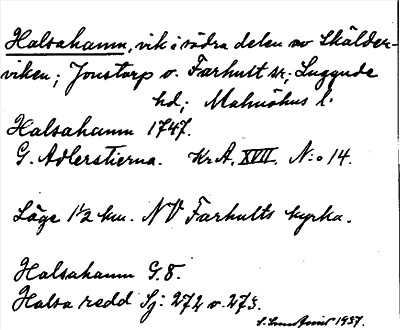 Halsahamn, vik i södra delen av Skälder-
viken; Jonstorp o. Farhult sr; Luggude
hd; Malmöhus l.
Halsahamn 1747.
G. Adlerstierna. Kr A. XVII. N:o 14.
Läge 1½ km. NV Farhults kyrka.
Halsahamn G.8.
Halsa redd Sj: 272 o. 273.
1937.